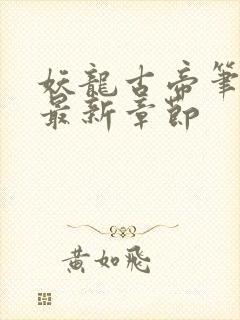 妖龍古帝筆
最新章節
黃如飛